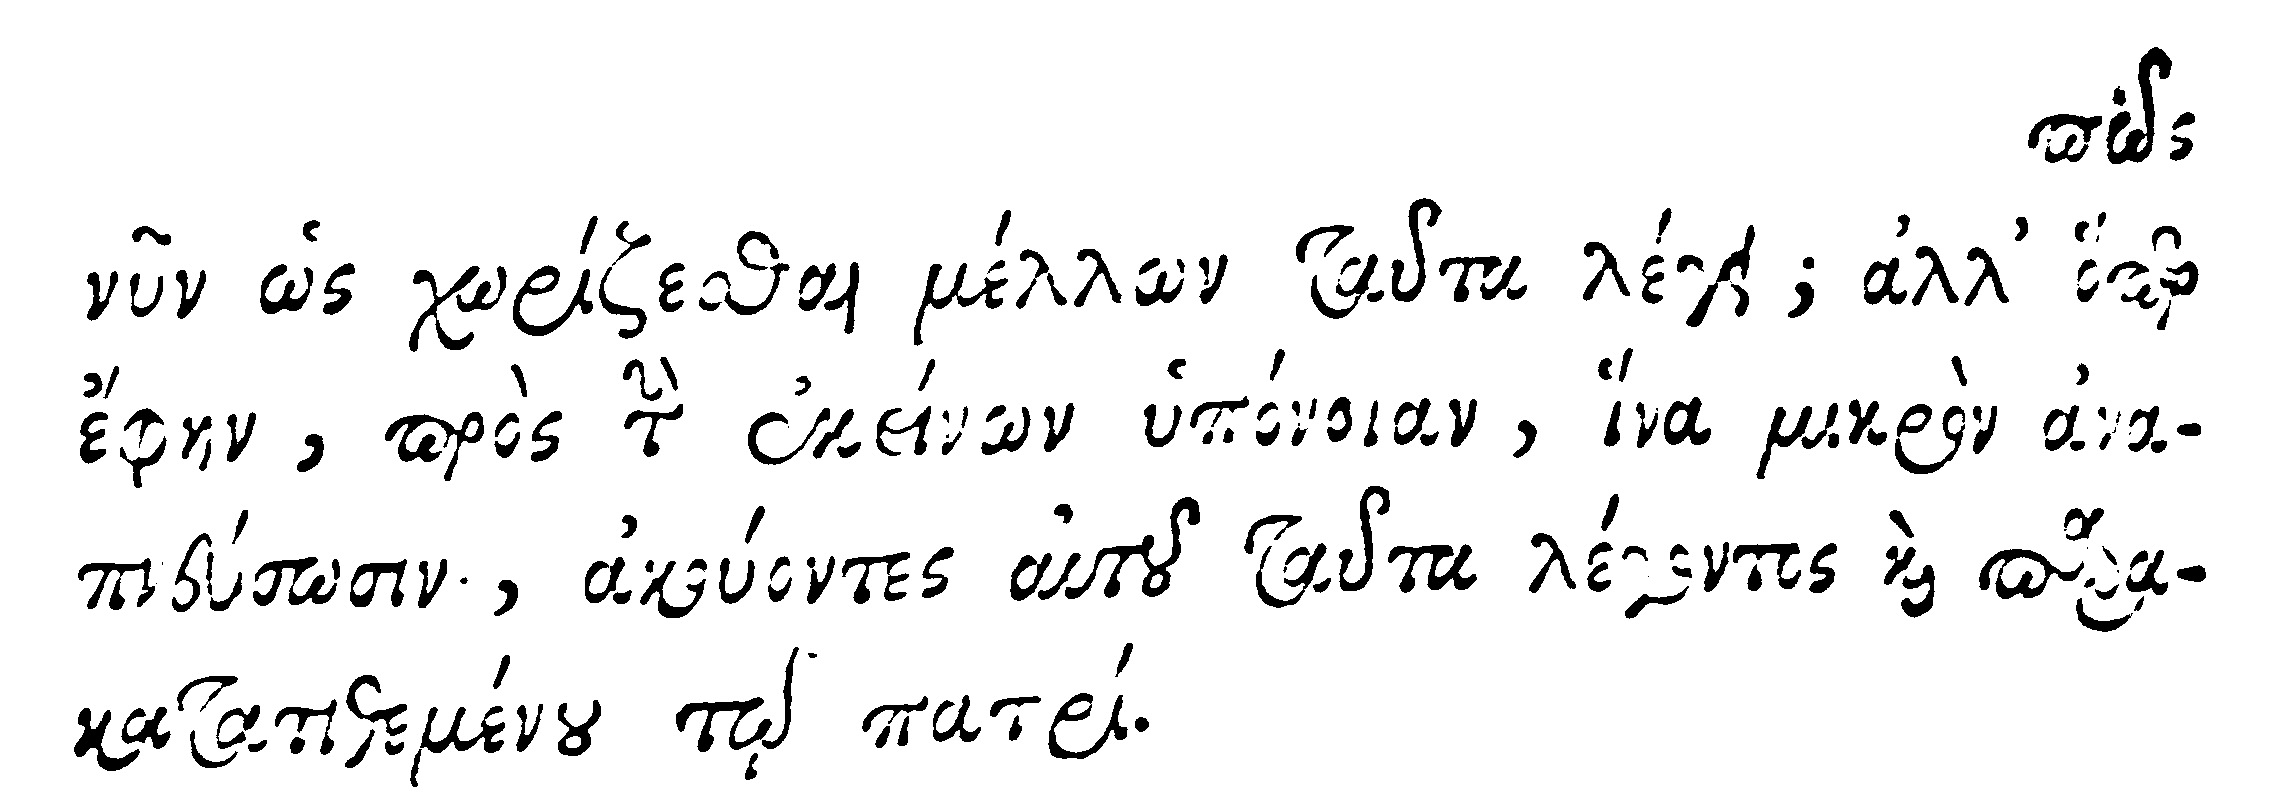 πῶς
νῦν ὡς χωρίζεσθαι μέλλων ταῦτα λέγῃ; ἀλλ' ὅπερ
ἔφην, πρὸς τὴν ἐκείνων ὑπόνοιαν, ἵνα μικρὸν ἀνα-
πιδύσωσιν, ἀκούοντες αὐτοῦ ταῦτα λέγοντος καὶ παρα-
κατατιθεμένου τῷ πατρί.